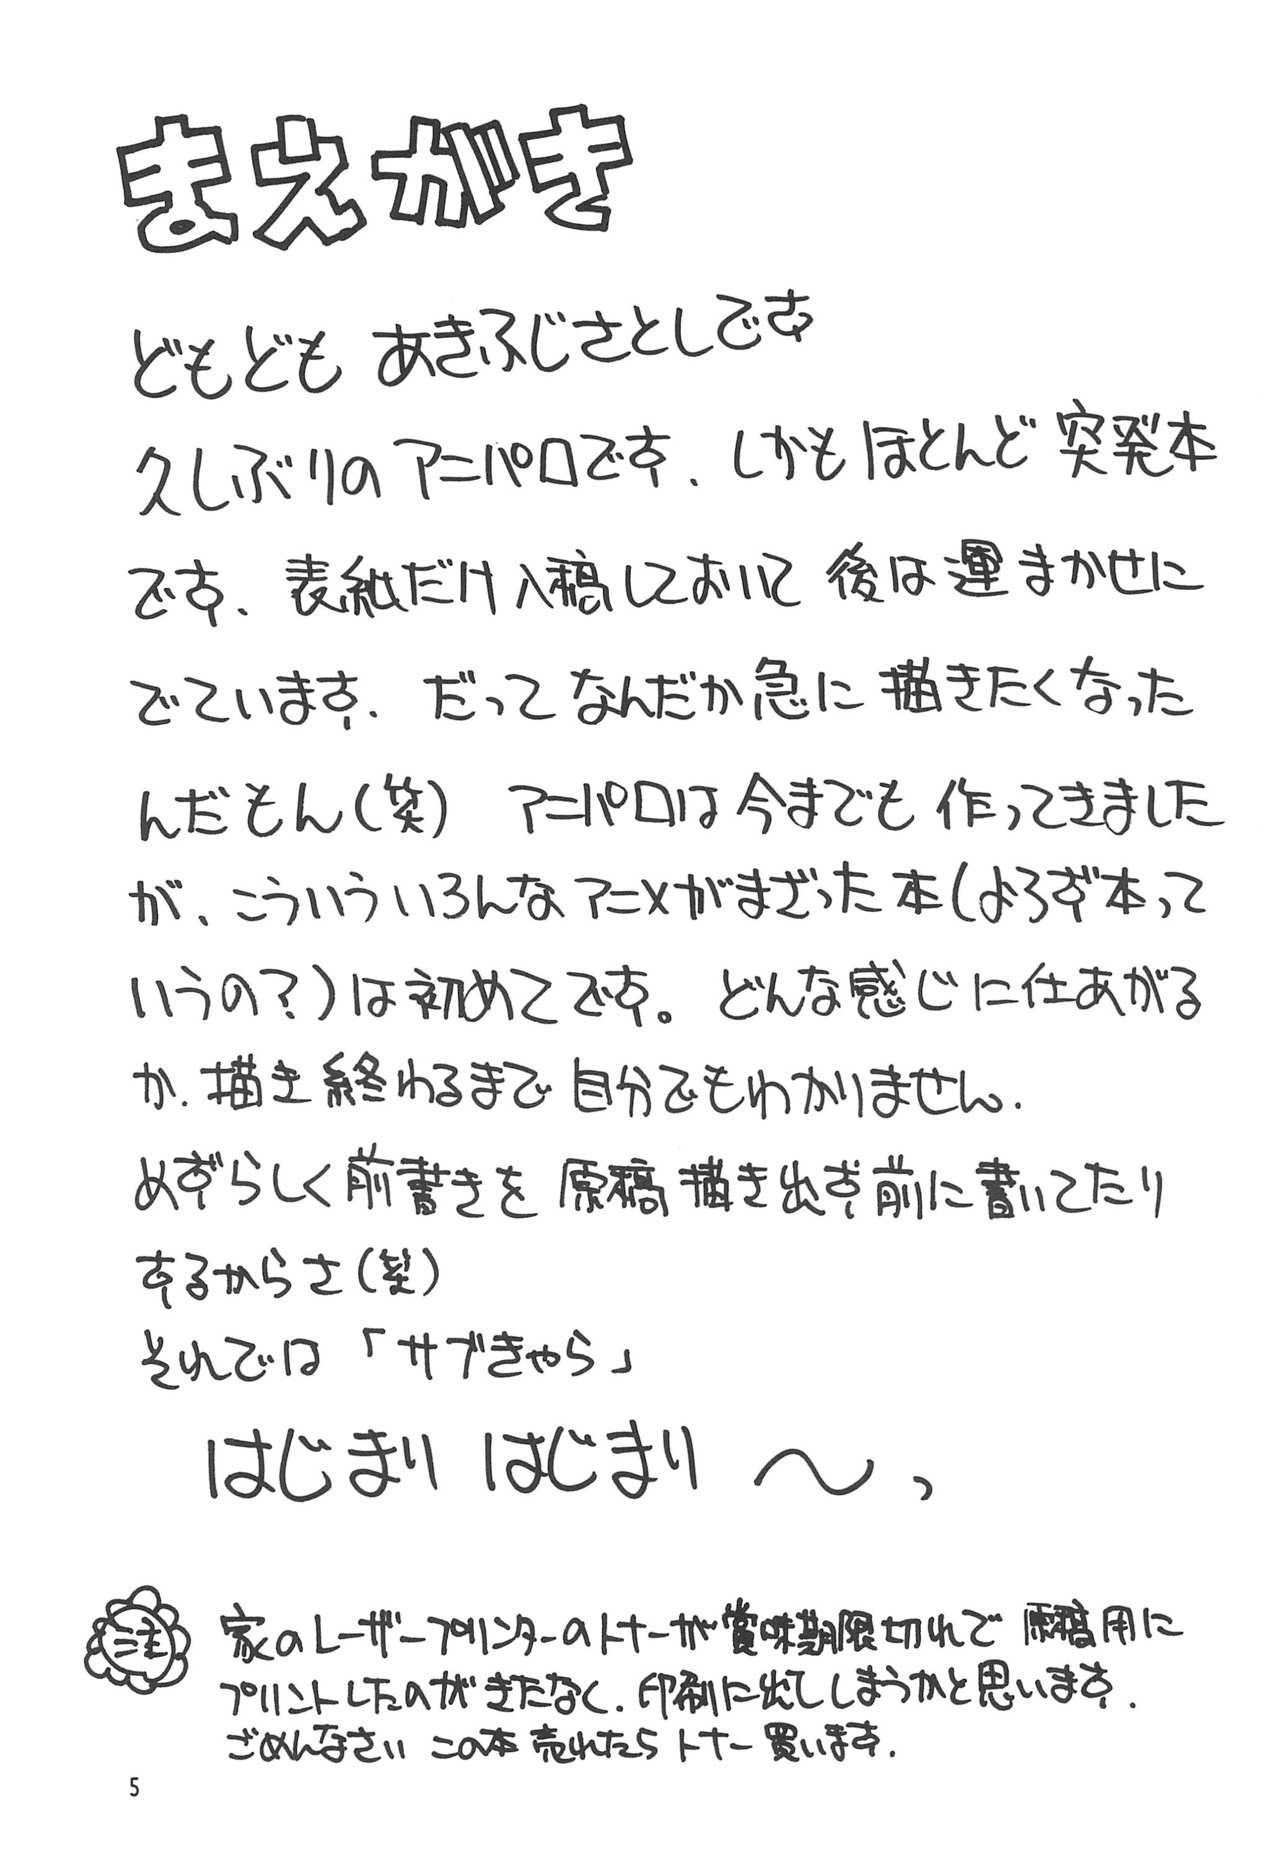 まえがき
どもども あきふじさとしです
久しぶりのアニパロです、しかもほとんど突発本
です、表紙だけ入稿しておいて後は運まかせに
でています、だってなんだか急に描きたくなった
んだもん(笑) アニパロは今までも作ってきました
が、こういういろんなアニメがまざった本(よろず本って
いうの?)は初めてです。どんな感じに仕あがる
か、描き終わるまで自分でもわかりません、
めずらしく前書きを原稿描き出す前に書いてたり
するからさ(笑)
それでは「サブきゃら」
はじまりはじまり〜っ
注 家のレーザープリンターのトナーが賞味期限切れで原稿用に
プリントしたのがきたなく、印刷に出てしまうかと思います、
ごめんなさい この本売れたらトナー買います、
5